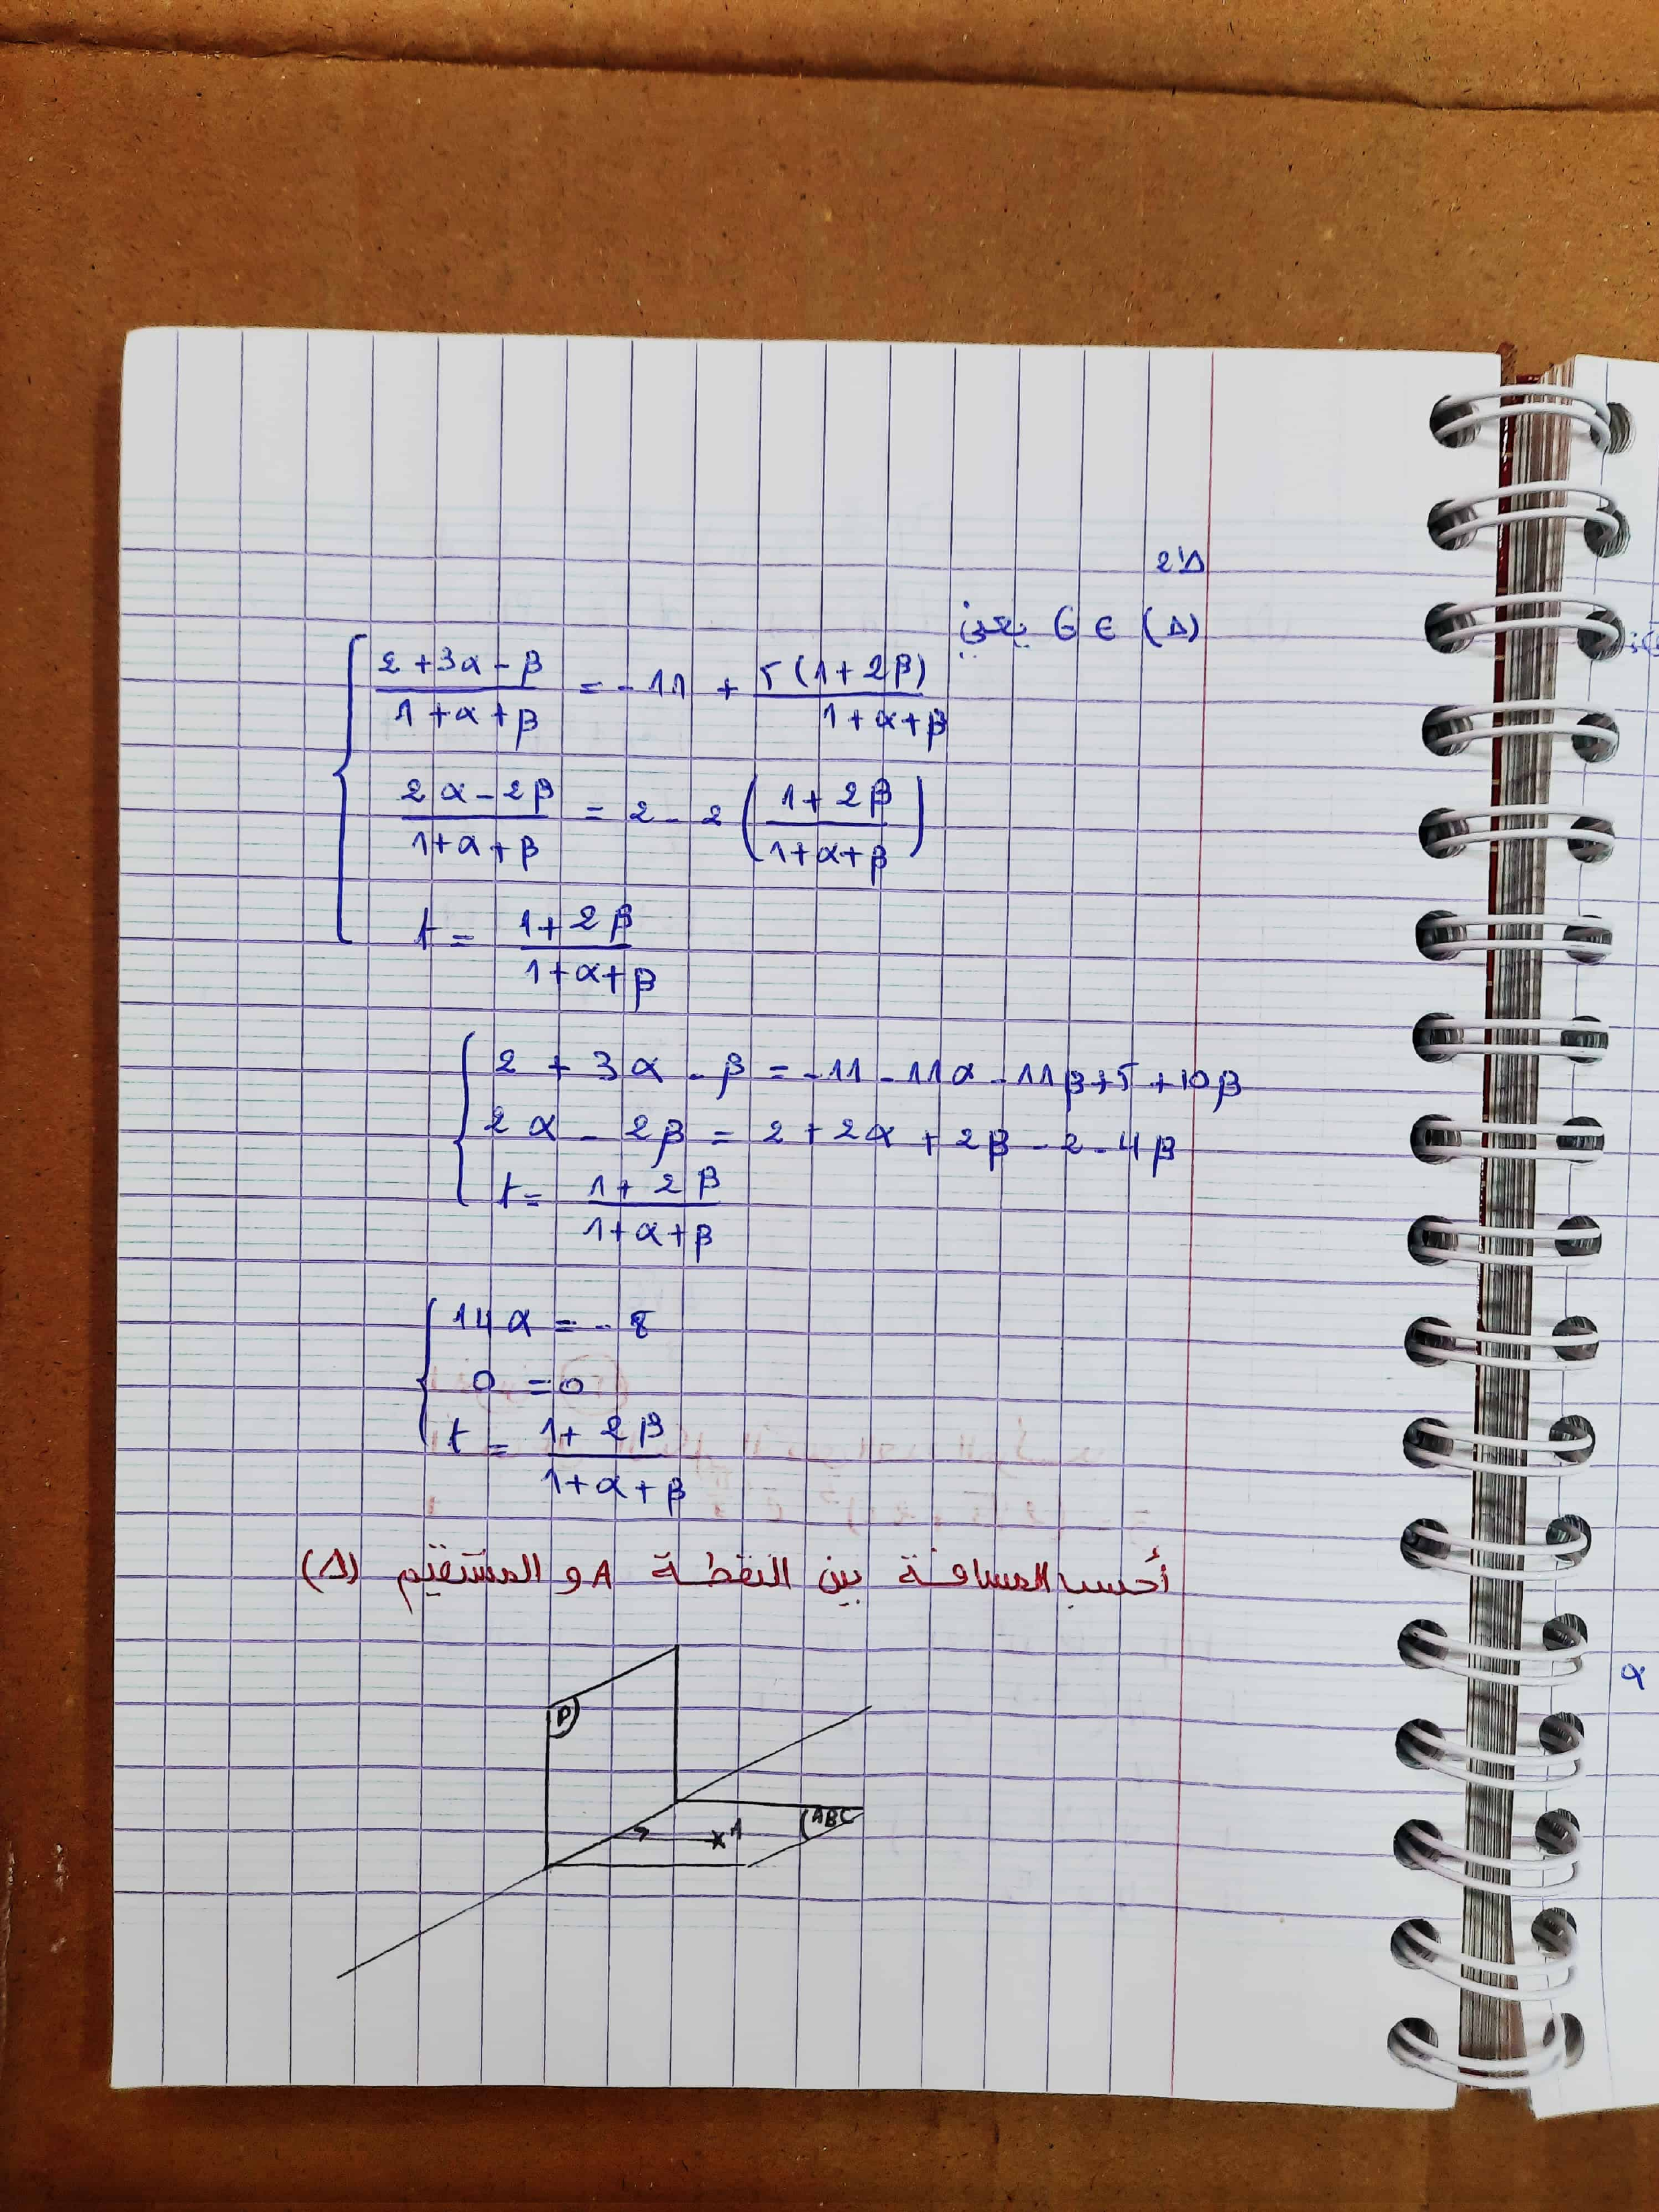 2'Δ
G ∈ (Δ) يعني
(2 + 3α - β)/(1 + α + β) = - 11 + 5(1 + 2β)/(1 + α + β)
(2α - 2β)/(1 + α + β) = 2 - 2((1 + 2β)/(1 + α + β))
t = (1 + 2β)/(1 + α + β)
2 + 3α - β = - 11 - 11α - 11β + 5 + 10β
2α - 2β = 2 + 2α + 2β - 2 - 4β
t = (1 + 2β)/(1 + α + β)
14α = - 8
0 = 0
t = (1 + 2β)/(1 + α + β)
أحسب المسافة بين النقطة A و المستقيم (Δ)
P
(ABC
A
α